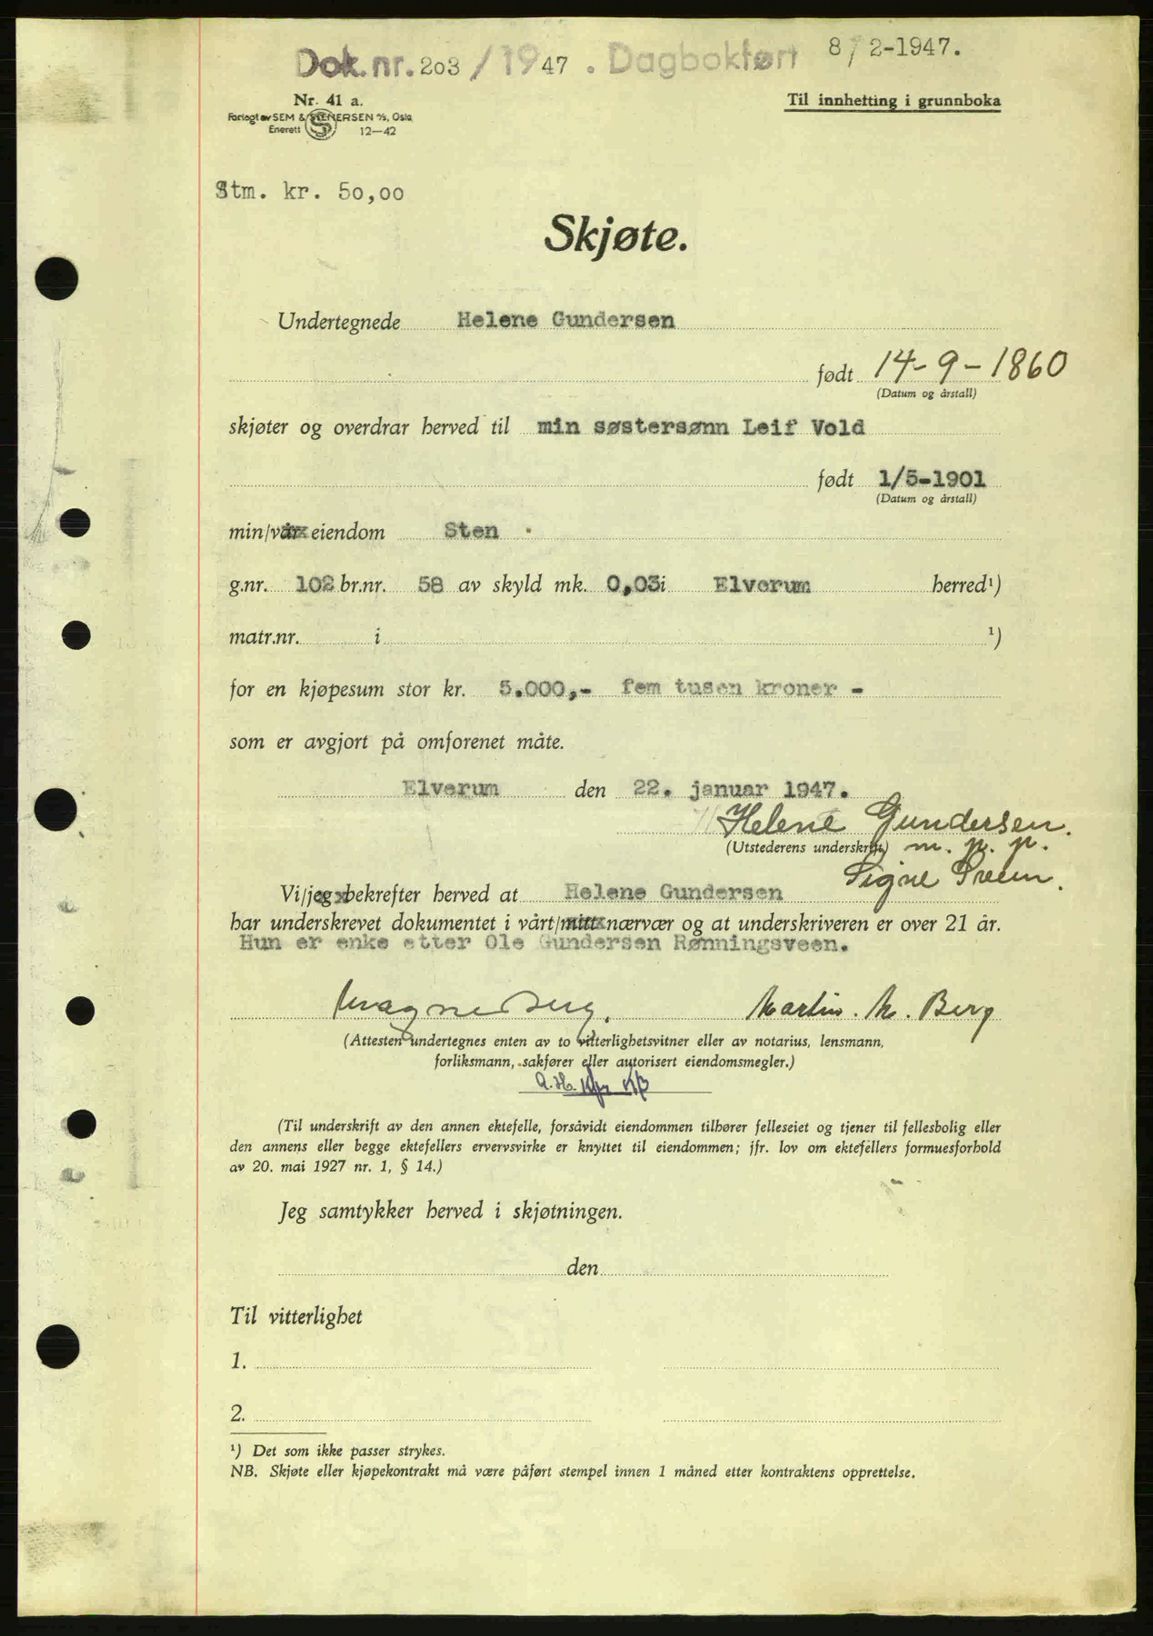 Dok.nr. 203 / 1947 . Dagbokført 8/2-1947.
Nr. 41 a.
Til innhefting i grunnboka
Forlagt av SEM & STENERSEN A/S, Oslo
Enerett 12—42
Stm. kr. 50,00
Skjøte.
Undertegnede Helene Gundersen
født 14-9-1860
(Datum og årstall)
skjøter og overdrar herved til min søstersønn Leif Vold
født 1/5-1901
(Datum og årstall)
min/vår eiendom Sten
g.nr. 102 br.nr. 58 av skyld mk. 0,03 i Elverum herred¹)
matr.nr. i ¹)
for en kjøpesum stor kr. 5.000,- fem tusen kroner -
som er avgjort på omforenet måte.
Elverum den 22. januar 1947.
Helene Gundersen.
(Utstederens underskrift) m. p. p.
Signe
Vi/jeg bekrefter herved at Helene Gundersen
har underskrevet dokumentet i vårt/mitt nærvær og at underskriveren er over 21 år.
Hun er enke etter Ole Gundersen Rønningsveen.
Magne Berg. Martin. M. Berg
(Attesten undertegnes enten av to vitterlighetsvitner eller av notarius, lensmann,
forliksmann, sakfører eller autorisert eiendomsmegler.)
(Til underskrift av den annen ektefelle, forsåvidt eiendommen tilhører felleseiet og tjener til fellesbolig eller
den annens eller begge ektefellers ervervsvirke er knyttet til eiendommen; jfr. lov om ektefellers formuesforhold
av 20. mai 1927 nr. 1, § 14.)
Jeg samtykker herved i skjøtningen.
den
Til vitterlighet
1.
2.
¹) Det som ikke passer strykes.
NB. Skjøte eller kjøpekontrakt må være påført stempel innen 1 måned etter kontraktens opprettelse.